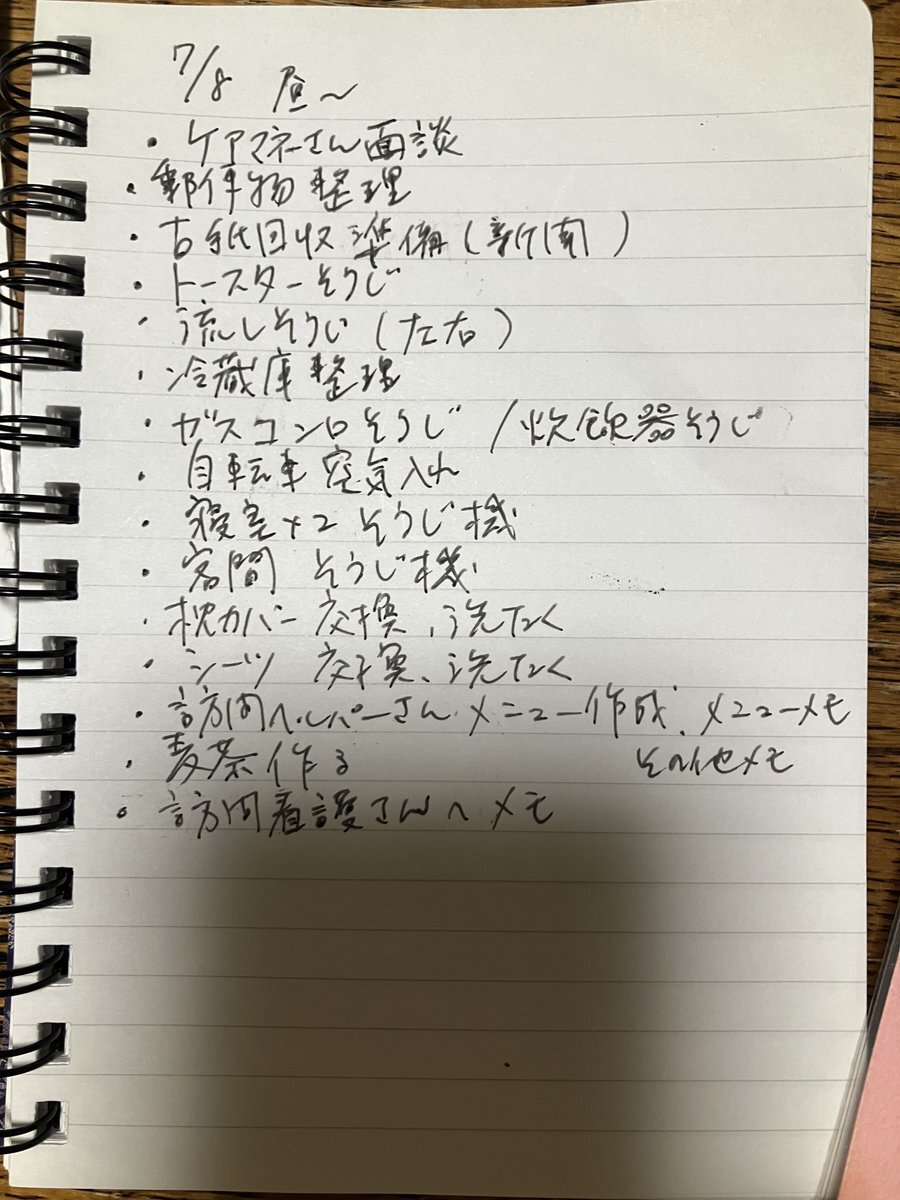 7/8 昼〜
・ケアマネーさん面談
・郵便物整理
・古紙回収準備(新聞)
・トースターそうじ
・流しそうじ(左右)
・冷蔵庫整理
・ガスコンロそうじ /炊飯器そうじ
・自転車空気入れ
・寝室×2 そうじ機
・客間 そうじ機
・枕カバー交換、洗たく
・シーツ 交換、洗たく
・訪問ヘルパーさんメニュー作成、メニューメモ
・麦茶作る その他メモ
・訪問看護さんへメモ